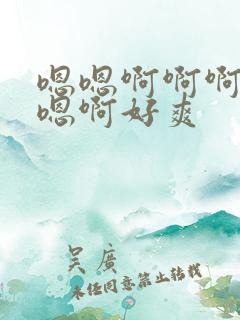 嗯嗯啊啊啊
嗯啊好爽
吴廣
未经同意禁止转载